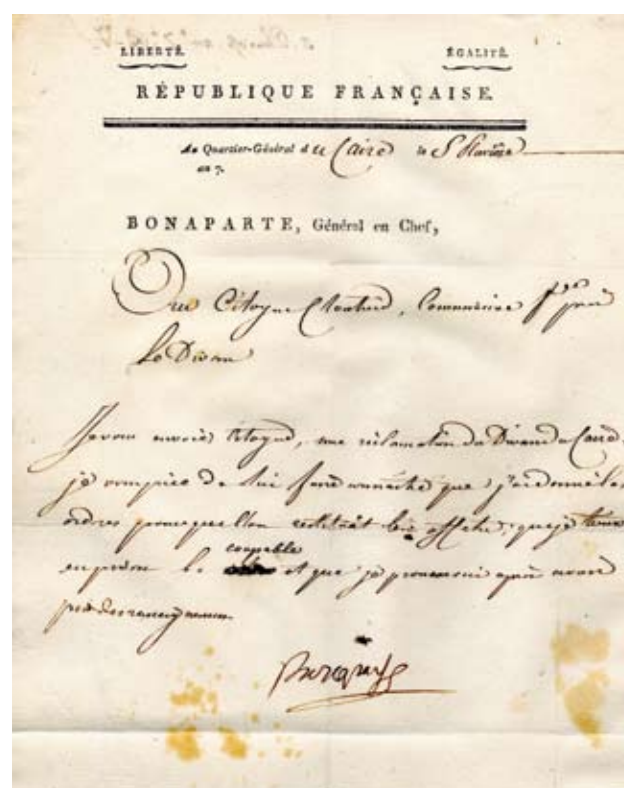 LIBERTÉ. ÉGALITÉ.
RÉPUBLIQUE FRANÇAISE.
Au Quartier-Général du Caire le
an 7.
BONAPARTE, Général en Chef,
Au Citoyen Commissaire
Le Divan
Je vous envoie Citoyen, une réclamation du Divan du Caire.
je vous prie de lui faire connaitre que j'ai donné les
ordres pour que l'on restituât les effets, que je tiens
en prison le coupable et que je prononcerai après avoir
pris des renseignemens.